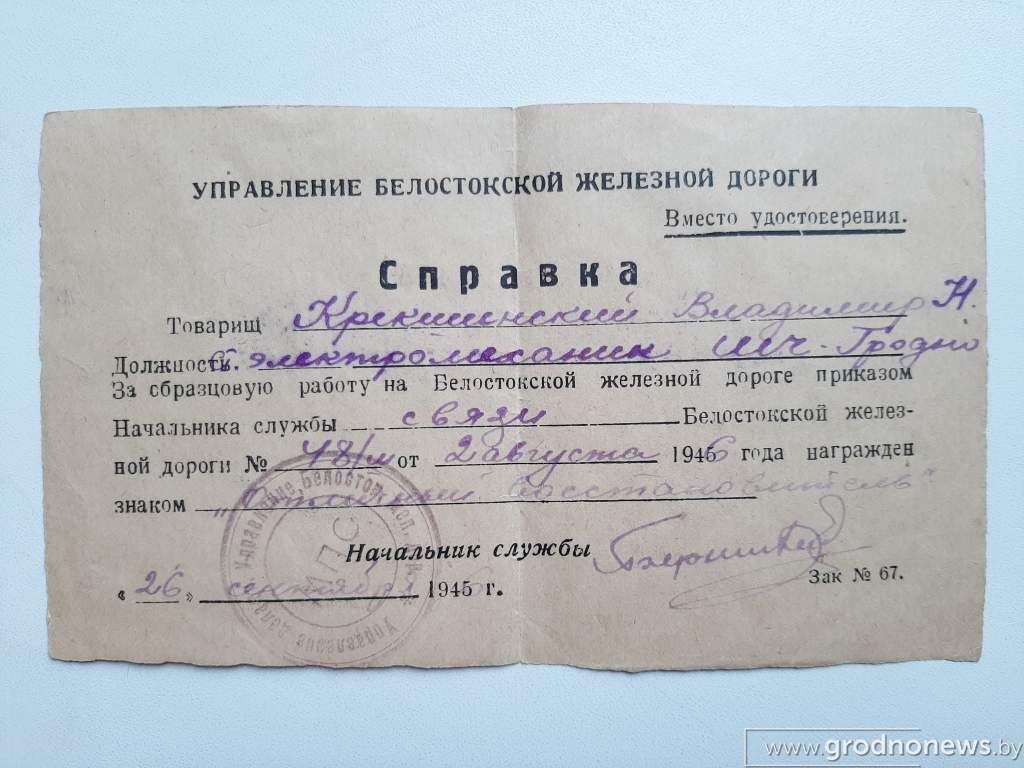 УПРАВЛЕНИЕ БЕЛОСТОКСКОЙ ЖЕЛЕЗНОЙ ДОРОГИ
Вместо удостоверения.
Справка
Товарищ Крекшинский Владимир Н.
Должность ст. электромеханик ШЧ-Гродно
За образцовую работу на Белостокской железной дороге приказом
Начальника службы связи Белостокской желез-
ной дороги № 48/м от 2 августа 1946 года награжден
знаком „Отличный восстановитель"
Начальник службы
«26» сентября 1946 г.
Зак № 67.
Управление Белосток
МПС
www.grodnonews.by